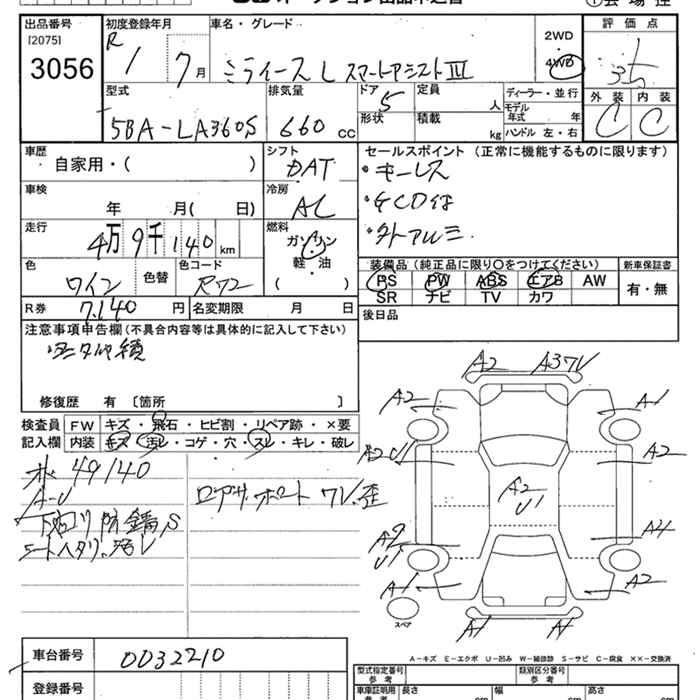 出品番号
[2075]
3056
初度登録年月
R 1 7月
車名・グレード
ミライース L スマートアシストⅢ
2WD
4WD
評価点
型式
5BA-LA360S
排気量
660 cc
ドア 5
形状
定員 人
積載 kg
ディーラー・並行
モデル年式 年
ハンドル 左・右
外装 内装
C C
車歴
自家用・( )
シフト
DAT
車検
年 月( 日)
冷房
AC
走行
4万9千140km
燃料
ガソリン
軽・油
( )
色
ワイン
色替
色コード
R72
R券 7.140 円
名変期限 月 日
セールスポイント (正常に機能するものに限ります)
・キーレス
・外アルミ
装備品 (純正品に限り○をつけてください)
新車保証書
PS PW ABS エアB AW
SR ナビ TV カワ
有・無
後日品
注意事項申告欄 (不具合内容等は具体的に記入して下さい)
修復歴 有 〔箇所 〕
検査員 FW キズ・飛石・ヒビ割・リペア跡・×要
記入欄 内装 キズ・汚レ・コゲ・穴・スレ・キレ・破レ
49140
A-U
下回り防錆S
シートヘタリ、汚レ
ロアサポート ワレ・歪
A2 A3ワレ
A2 A1
A2U1 A2
A2
U1
A2
U1
A4
A1 A2
A1 A1
スペア
A-キズ E-エクボ U-凹み W-補修跡 S-サビ C-腐食 ××-交換済
車台番号 0032210
登録番号
型式指定番号
参考
類別区分番号
参考
車庫証明用
参考
長さ 幅 高さ